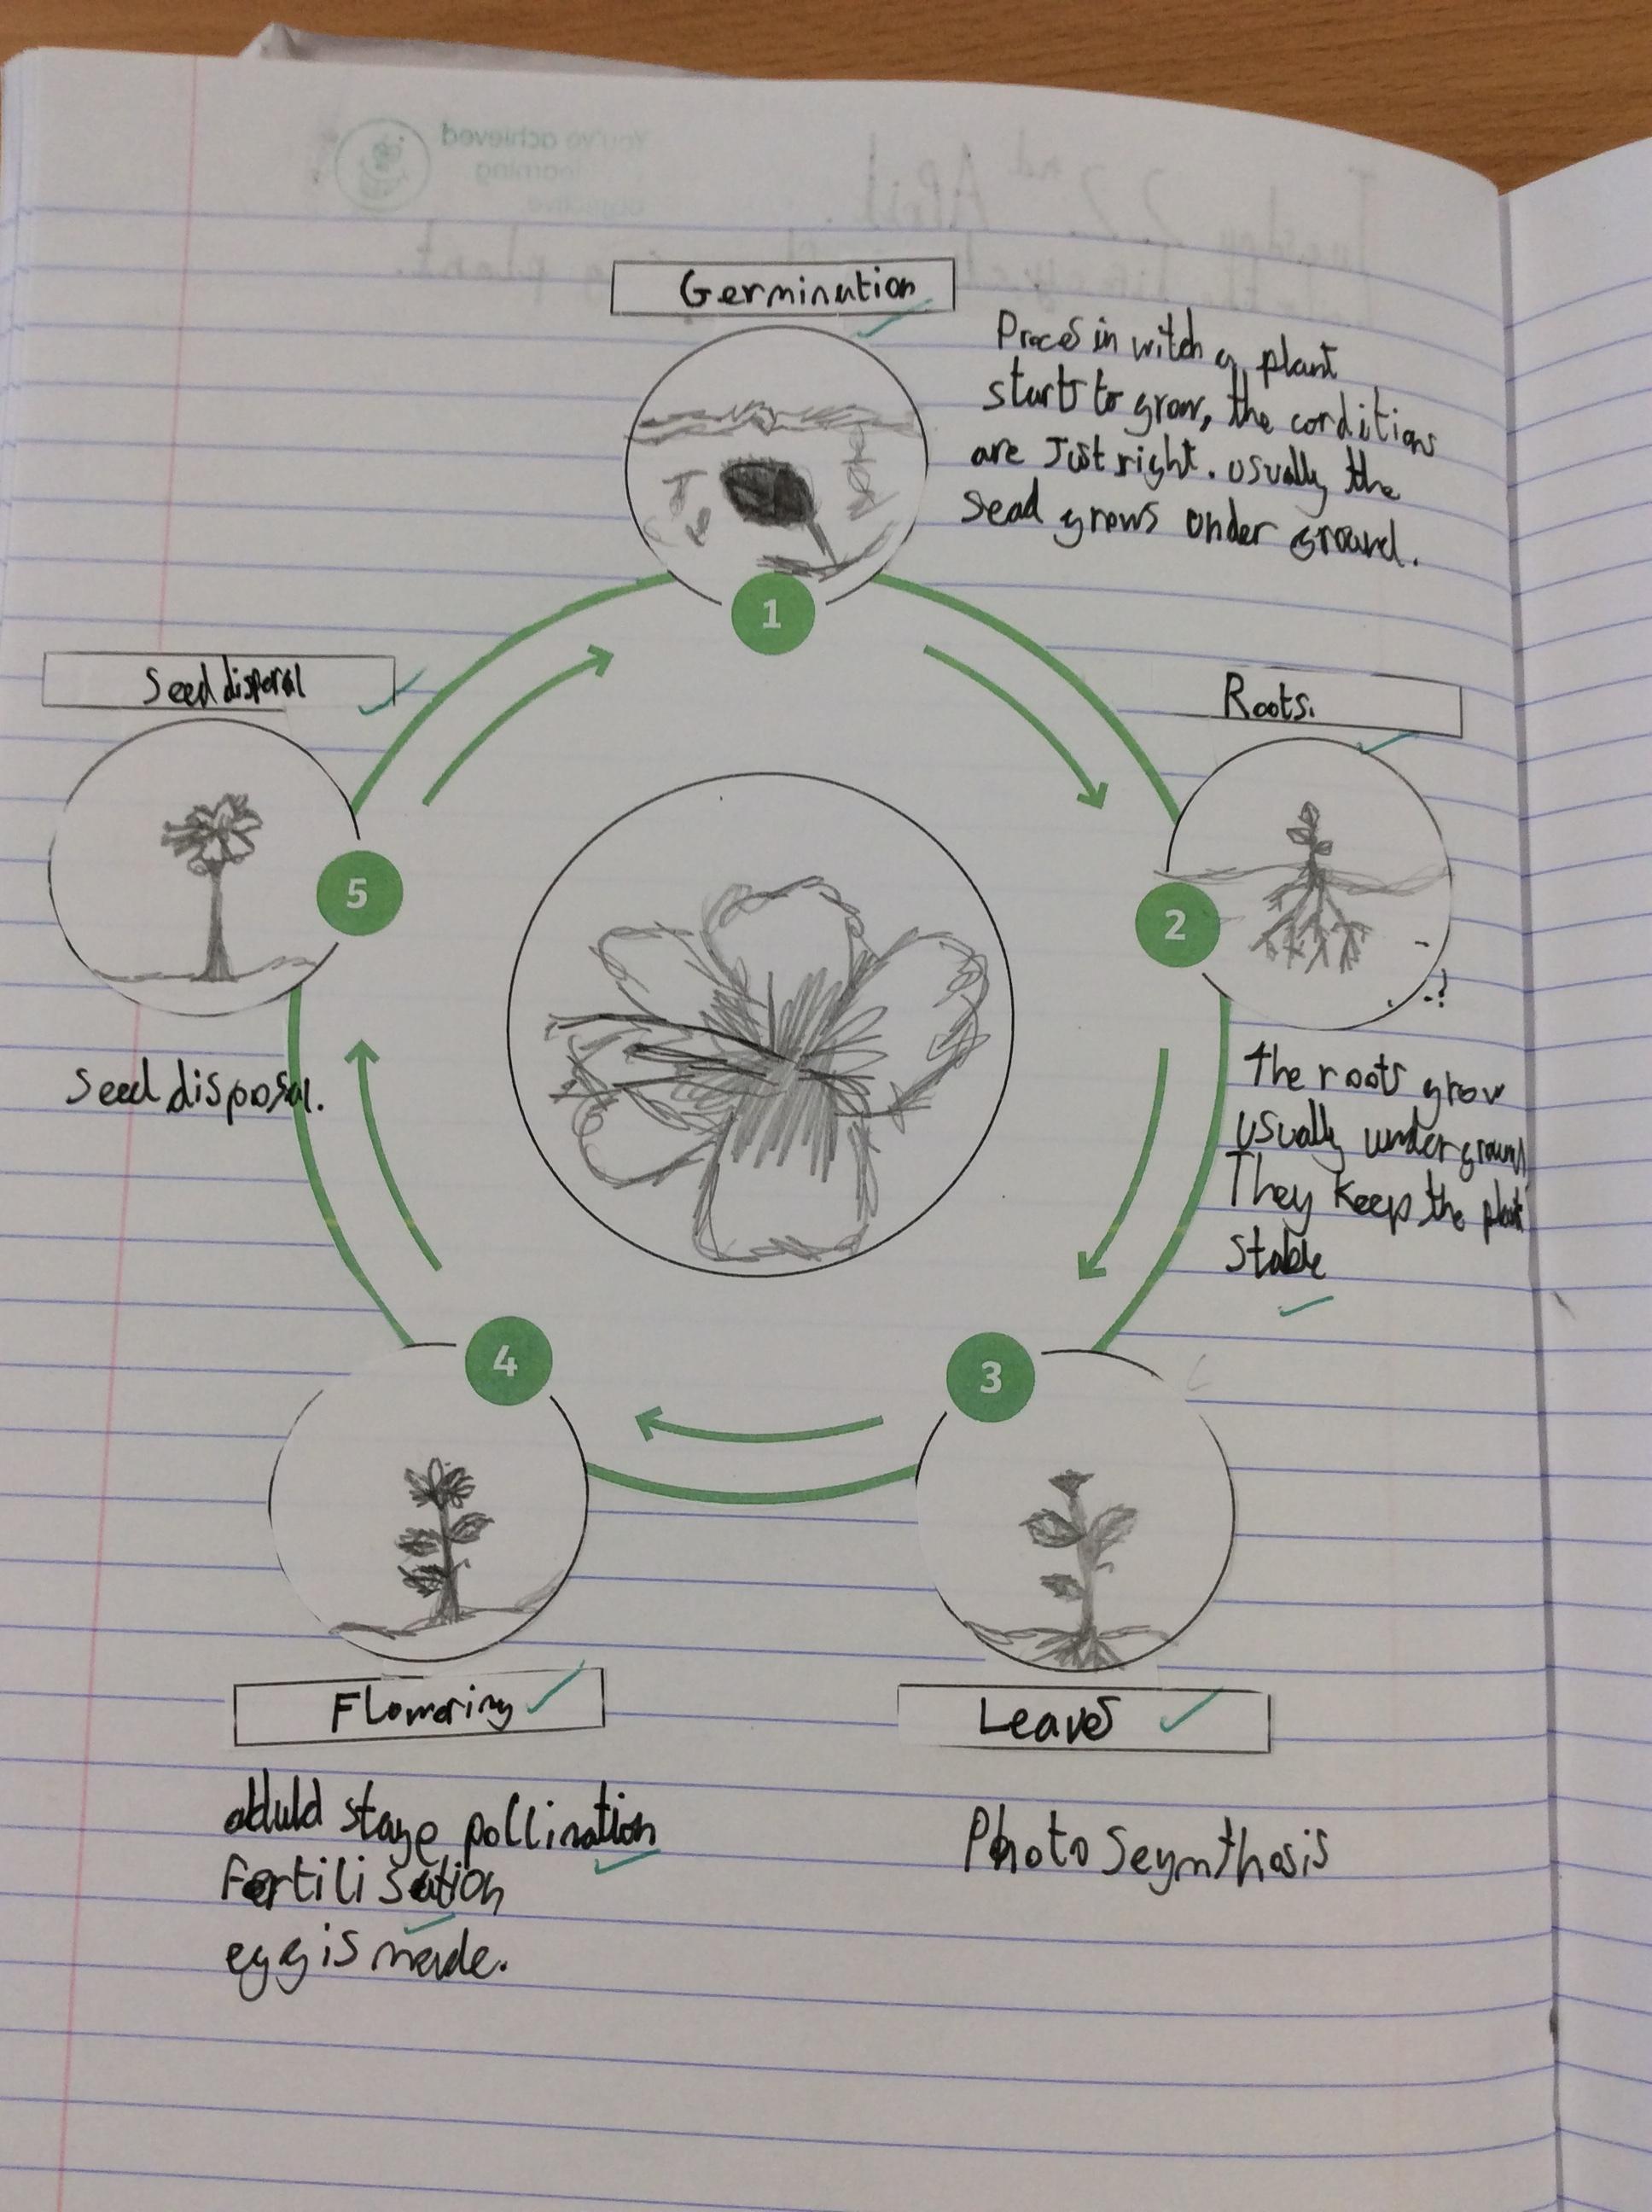 Germination
Proces in witch a plant
starts to grow, the conditions
are Just right. usually the
sead grows under ground.
1
Roots.
2
the roots grow
usually underground
They keep the plant
stable
3
Leaves
Photo Seynthosis
4
Flowering
aduld stage pollination
Fertilisation
egg is made.
5
Seed disposal
Seed disposal.
You've achieved
learning
objective
Tuesday 22nd April.
plant.